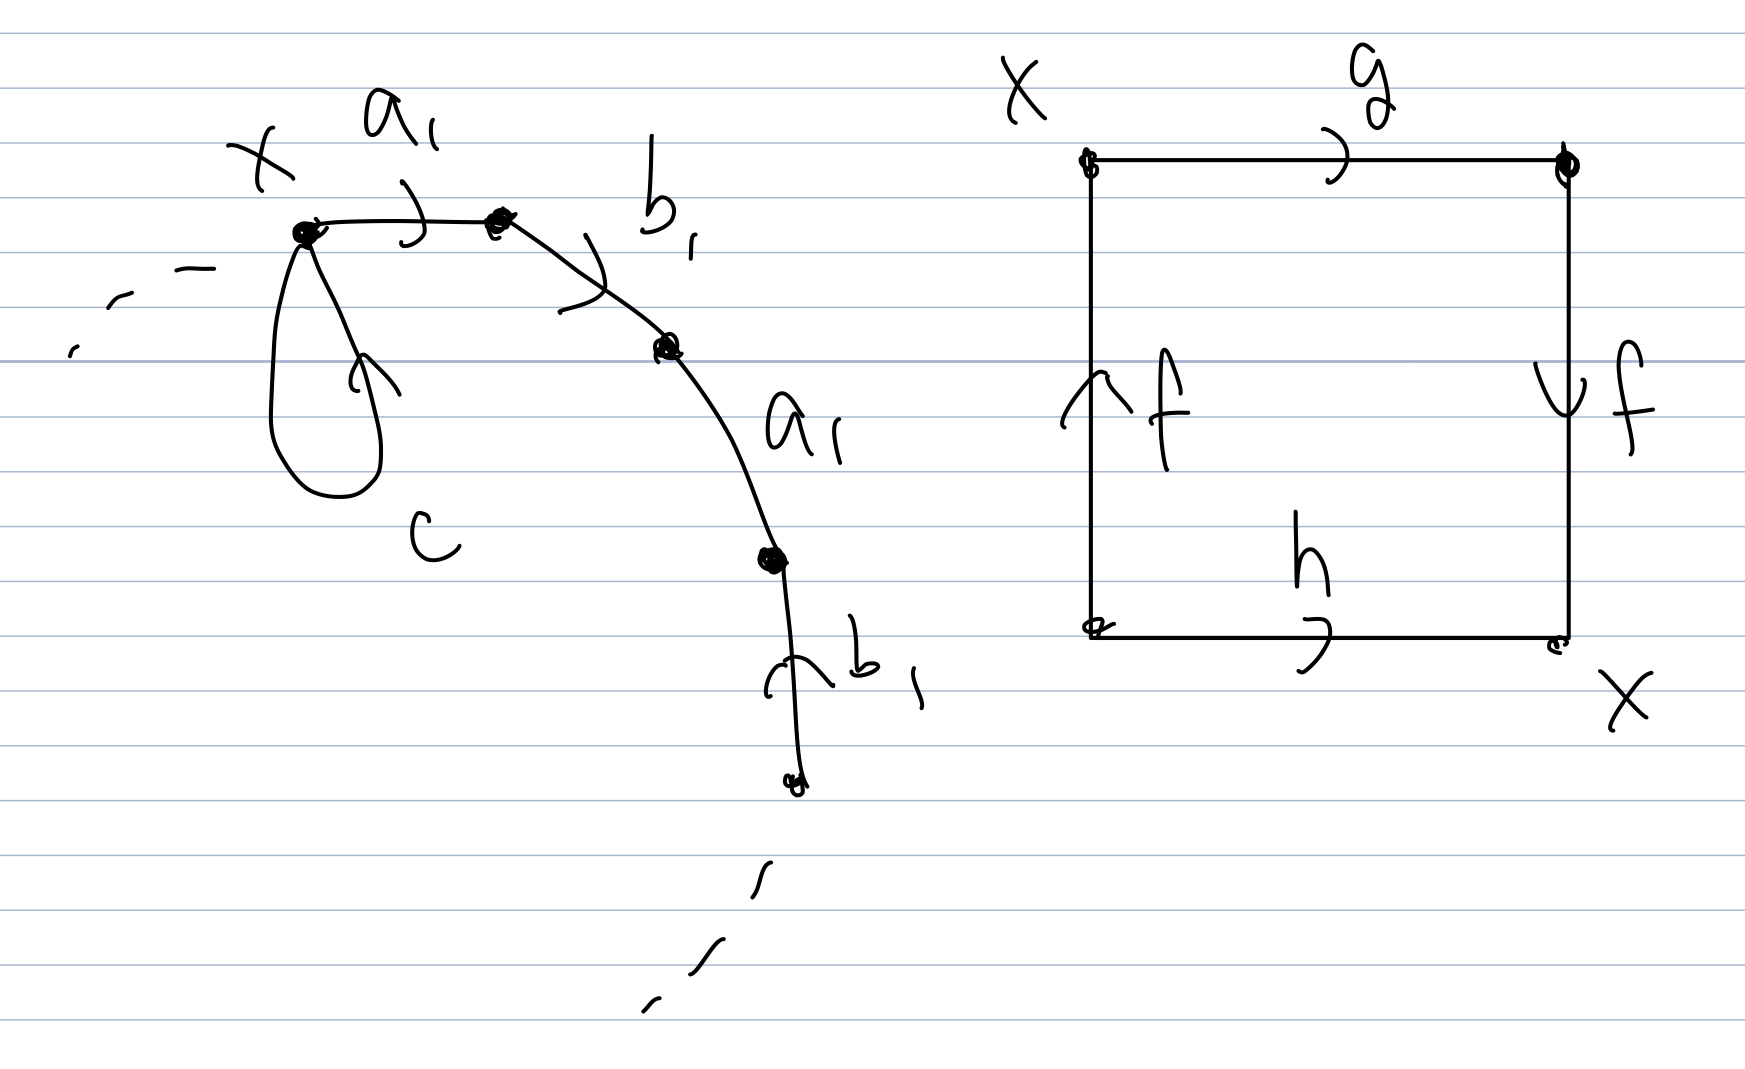 x
a₁
b₁
a₁
c
b₁
x
g
f
f
h
x